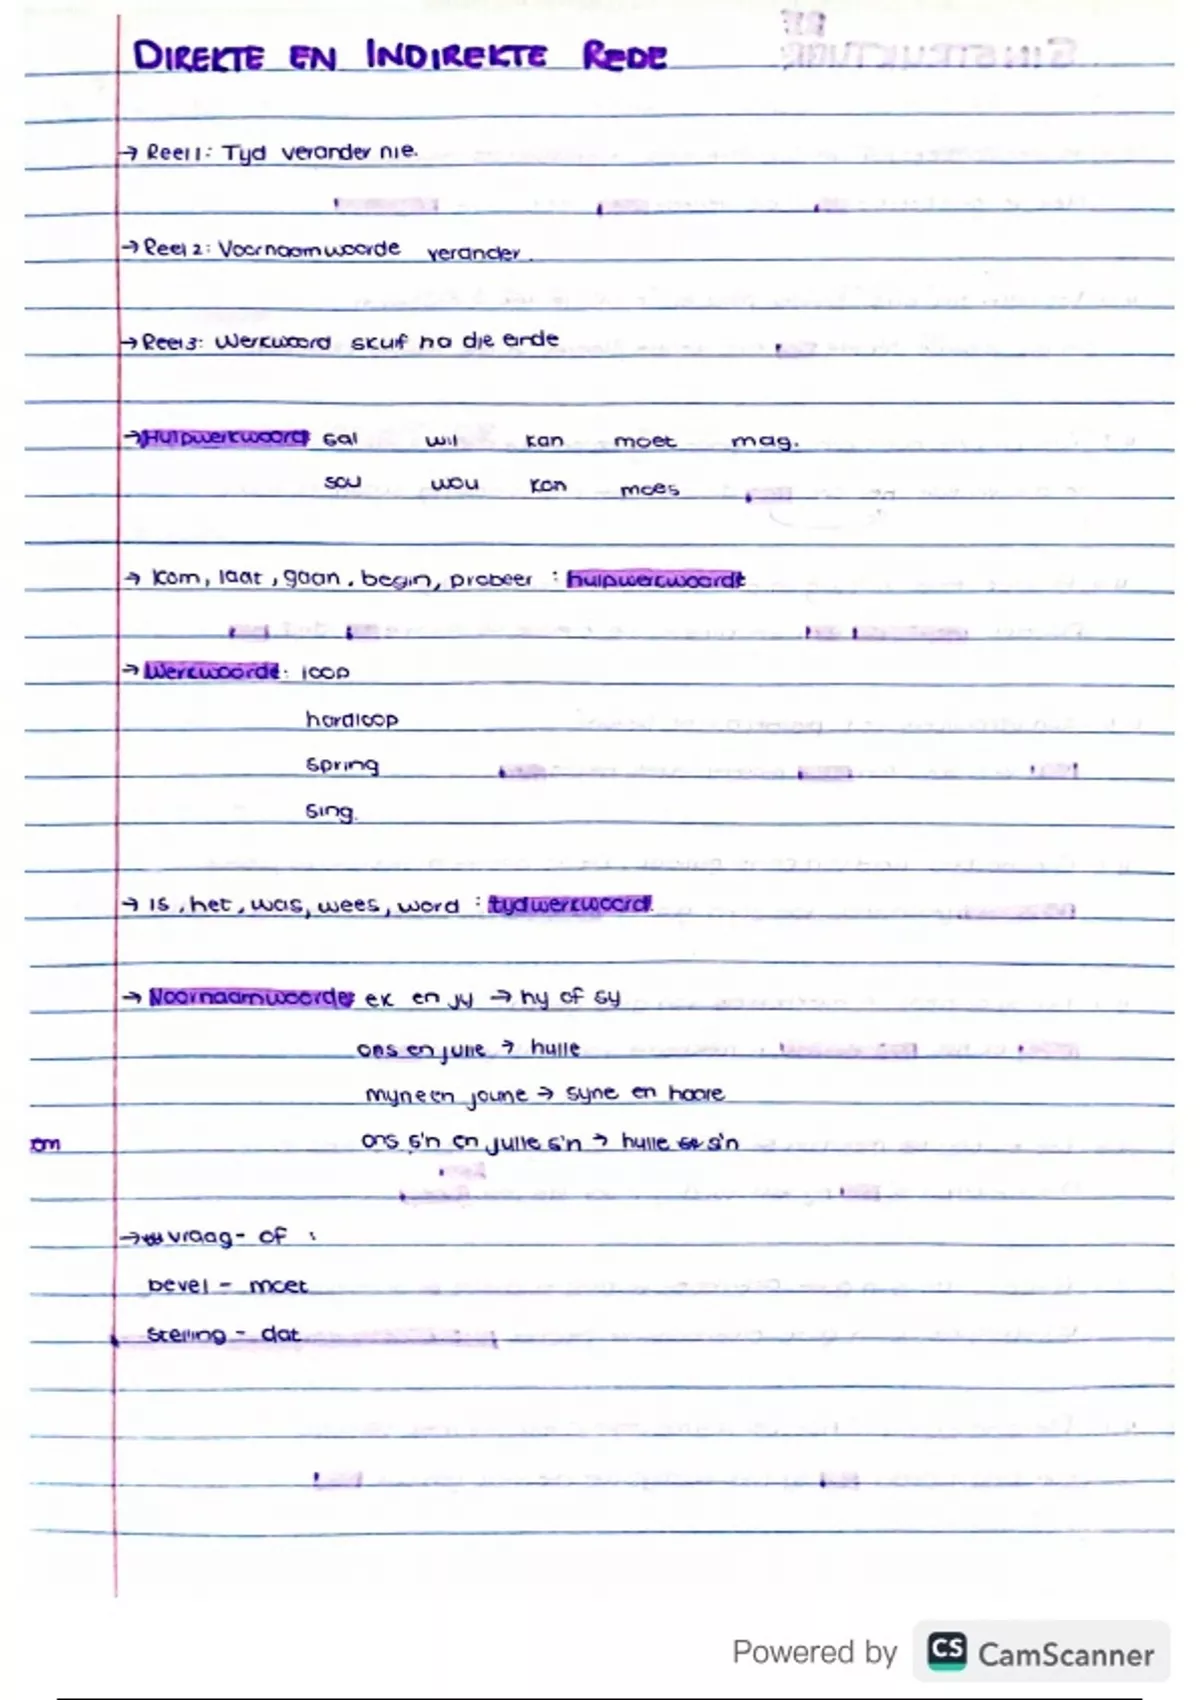 DIREKTE EN INDIREKTE REDE
→ Reel 1: Tyd verander nie.
→ Reel 2: Voornaamwoorde verander.
→ Reel 3: Werkwoord skuif na die einde
→ Hulpwerkwoord sal wil kan moet mag.
sou wou kon moes
→ kom, laat, gaan, begin, probeer : hulpwerkwoorde
→ Werkwoorde: loop
hardloop
spring
sing.
→ is, het, was, wees, word : tydwerkwoord.
→ Voornaamwoorde ek en jy → hy of sy
ons en julle → hulle
myne en joune → syne en hare
om ons s'n en julle s'n → hulle s'n
→ vraag - of :
bevel - moet
stelling - dat
Powered by CS CamScanner